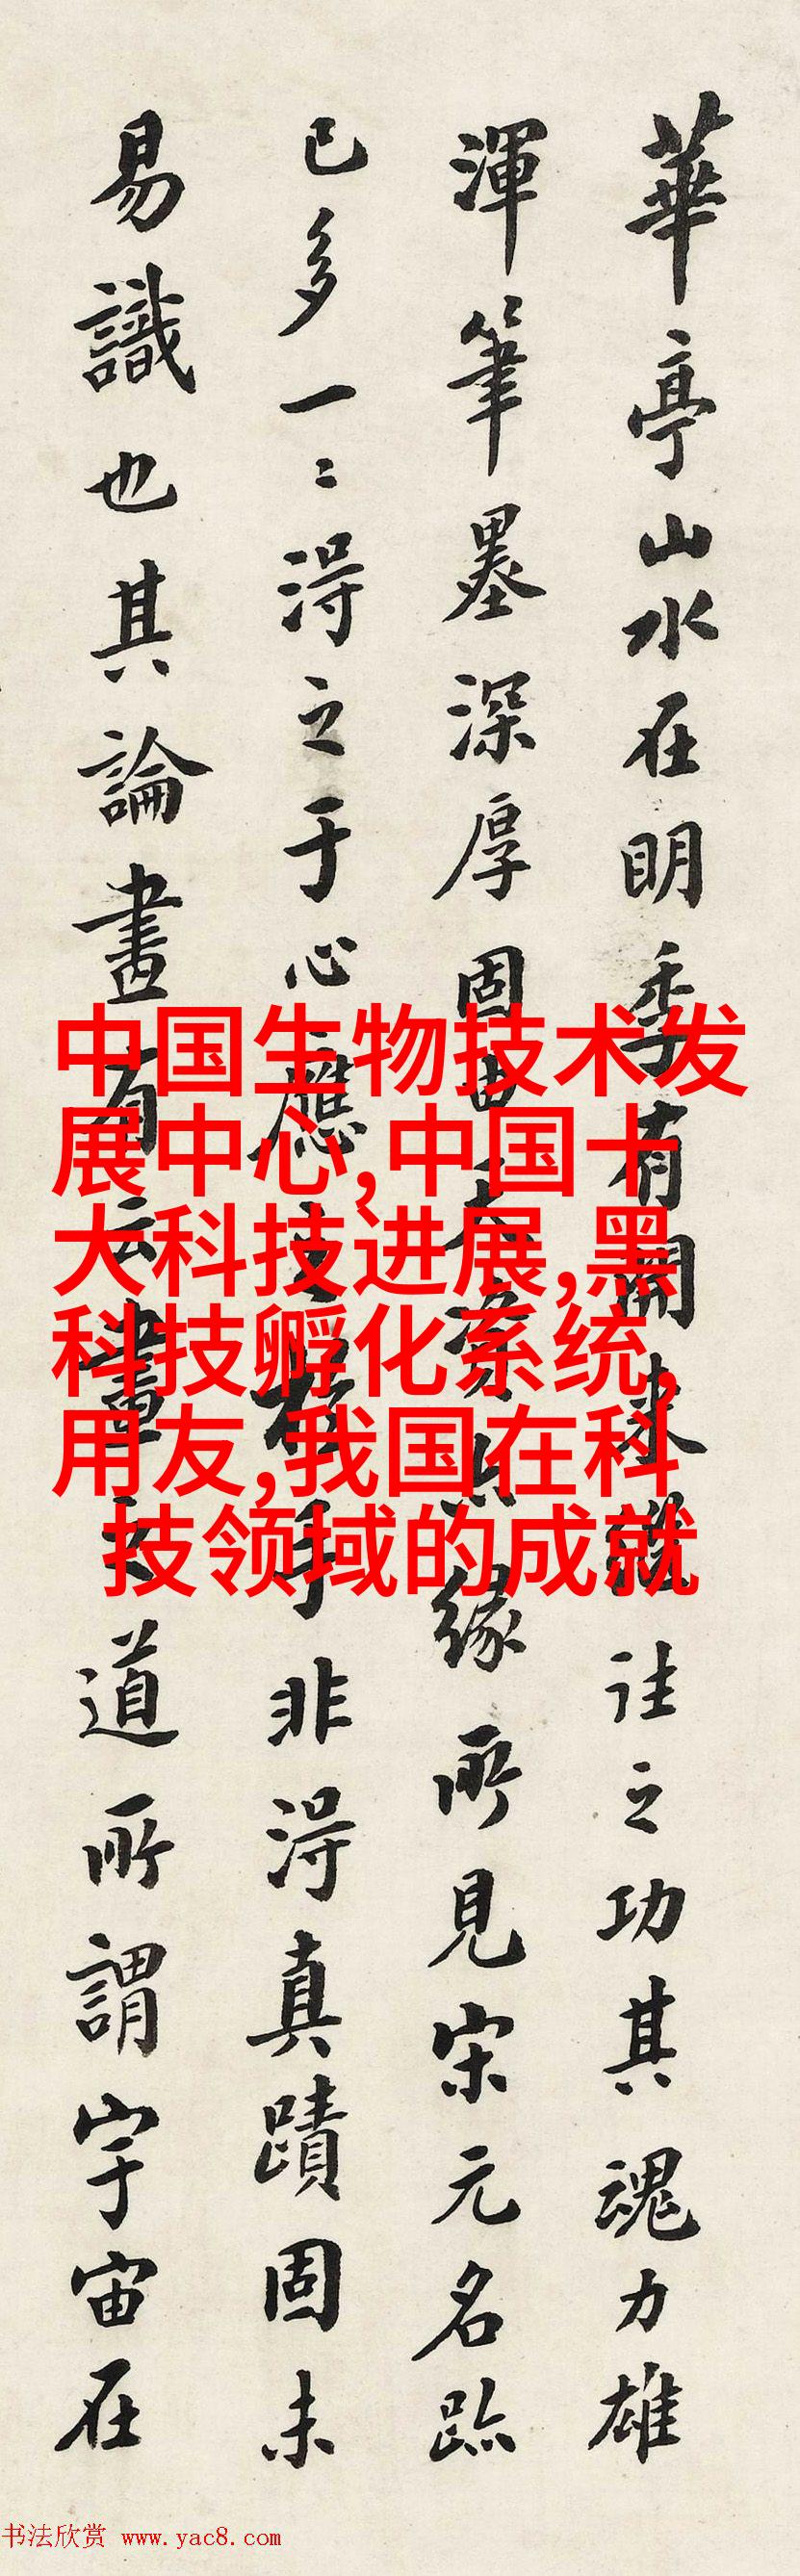 華亭山水在明季有開来繼往之功其魂力雄
渾筆墨深厚固由天緣所見宋元名跡
已多一二得之于心應之於手非得真蹟固未
易識也其論畫有云畫之道所謂宇宙在
中国生物技术发
展中心,中国十
大科技进展,黑
科技孵化系统,
用友,我国在科
技领域的成就
书法欣赏 www.yac8.com